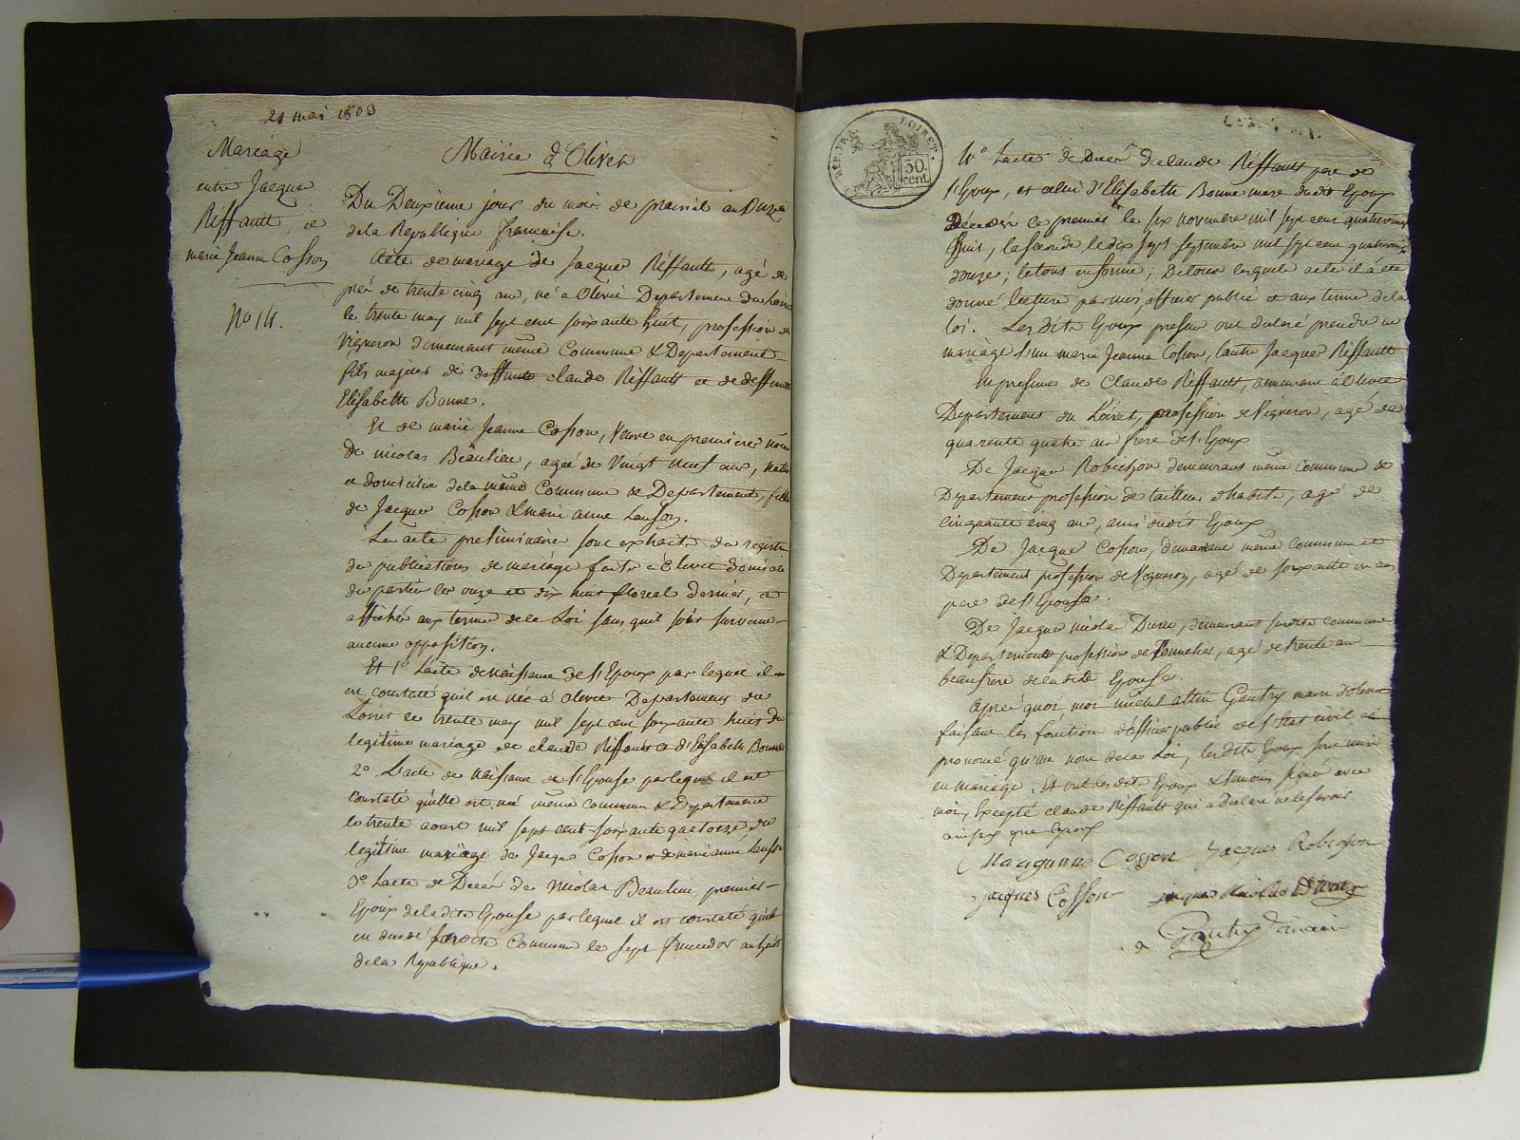 21 mai 1803
Mariage
entre Jacque
Riffault, et
marie Jeanne Cosson
No 14.
Mairie d'Olivet
Du Deuxieme jour du mois de prairial an Onze
de la Republique françoise.
Acte de mariage de Jacque Riffault, agé de
près de trente cinq ans, né a Olivet Departement du Loiret
le trente may mil sept cent soixante huit, profession de
Vigneron demeurant même Commune & Departement
fils majeur de deffunt claude Riffault et de deffunte
Elisabeth Bonne.
Et de marie Jeanne Cosson, Veuve en premiere noce
de nicolas Beaulieu, agée de Vingt neuf ans, native
et domiciliée de la même Commune & Departement, fille
de Jacque Cosson & marie anne Lanson.
Les acte preliminaire sont extrait du registre
de publications de mariage faite à Olivet domicile
de partie les onze et dix huit floreal dernier, et
affiché aux terme de la Loi sans quil soit survenue
aucune opposition.
Et 1º L'acte de naissance de l'Epoux par lequel il
est constaté quil est née à olivet Departement du
Loiret le trente may mil sept cent soixante huit du
legitime mariage de claude Riffault & d'Elisabeth Bonne
2º L'acte de naissance de l'Epouse par lequel il est
Constaté quelle est née même commune & Departement
le trente aoust mil sept cent soixante quatorze, du
legitime mariage de Jacque Cosson & de marie anne Lanson
3º L'acte de Décés de Nicolas Beaulieu, premier
Epoux de ladite Epouse par lequel il est constaté quil
est decedé susdite Commune le sept an huit
de la Republique.
RÉP. FRA. LOIRET.
50 cent.
4º L'actes de Décés de claude Riffault pere de
l'Epoux, et celui d'Elisabeth Bonne mere dudit Epoux
Décédés le premier le six novembre mil sept cent quatrevingt
huit, la seconde le dix sept septembre mil sept cent quatrevingt
douze; le tous en forme; De tous lesquels acte il a été
donné lecture par moi, officier public et aux terme de la
loi. Les dits Epoux presens ont declaré prendre en
mariage l'un marie Jeanne Cosson, l'autre Jacque Riffault
En presence de Claude Riffault, demeurant à Olivet
Departement du Loiret, profession de Vigneron, agé de
quarente quatre ans frere de l'Epoux
De Jacque Robichon demeurant même commune &
Departement profession de tailleur d'habits, agé de
cinquante cinq ans, ami dudit Epoux
De Jacque Cosson, demeurant même commune et
Departement profession de Vigneron, agé de soixante un ans
pere de l'Epouse.
De Jacque nicolas, demeurant susdite commune
& Departement profession de Tonnelier, agé de trente ans
beaufrere de ladite Epouse.
Après quoi moi Gentry maire d'olivet
faisant les fonction d'officier public de l'Etat civil ai
prononcé qu'au nom de la Loi, lesdits Epoux sont unis
en mariage. Et ont lesdits Epoux & temoins signé avec
moi, Excepté claude Riffault qui a declaré ne le savoir
ainsi que Epoux
Cosson Jacques Robichon
jacques Cosson jacques Nicolas
Gentry maire